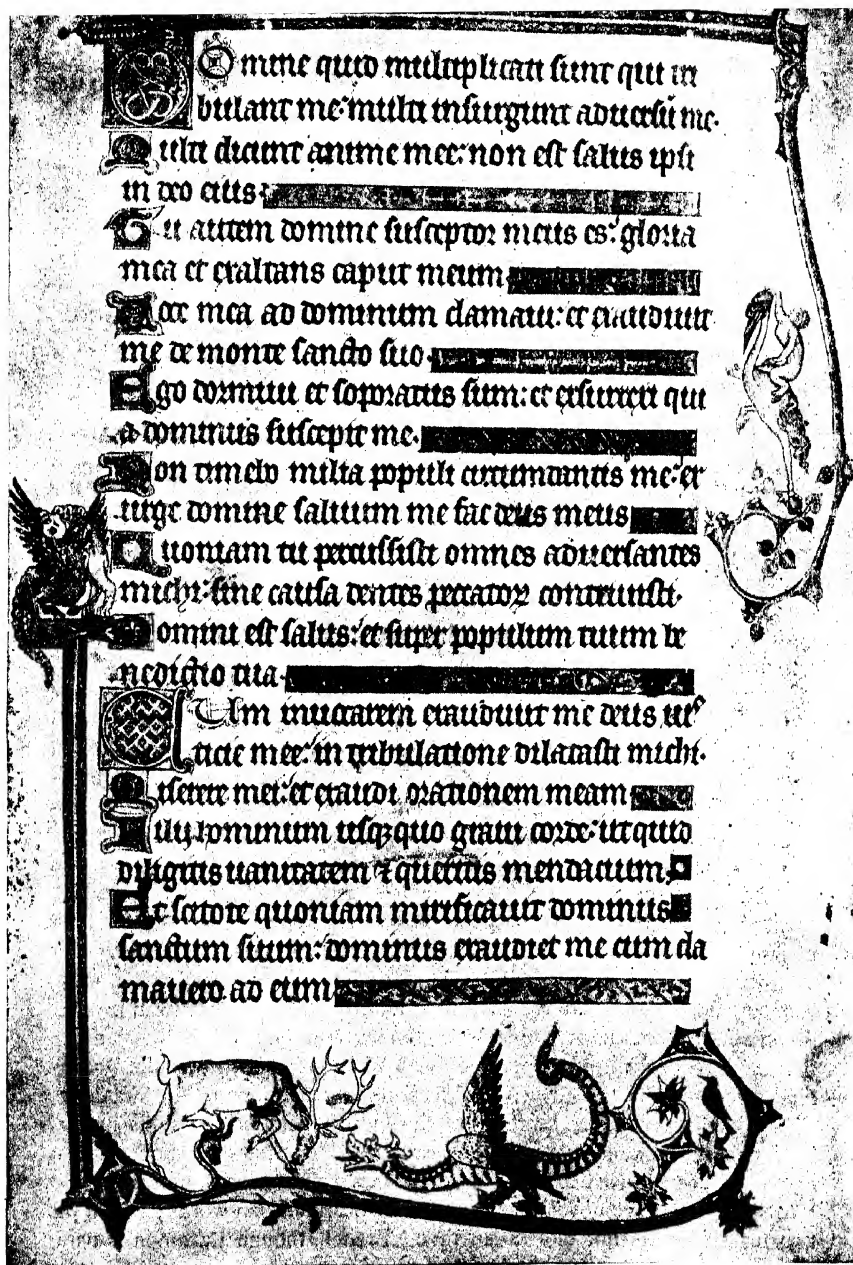 Domine quid multiplicati sunt qui tri
bulant me: multi insurgunt aduersū me.
Multi dicunt anime mee: non est salus ipsi
in deo eius:
Tu autem domine susceptor meus es: gloria
mea et exaltans caput meum
Voce mea ad dominum clamaui: et exaudiuit
me de monte sancto suo.
Ego dormiui et soporatus sum: et exsurrexi qui
a dominus suscepit me.
Non timebo milia populi circumdantis me: ex
urge domine saluum me fac deus meus
Quoniam tu percussisti omnes aduersantes
michi: sine causa dentes peccatoꝝ contriuisti.
Domini est salus: et super populum tuum be
nedictio tua.
Cum inuocarem exaudiuit me deus iuſ
ticie mee: in tribulatione dilatasti michi.
Miserere mei: et exaudi orationem meam
Filij hominum usqꝫquo graui corde: ut quid
diligitis uanitatem ⁊ queritis mendacium.
Et scitote quoniam mirificauit dominus
sanctum suum: dominus exaudiet me cum cla
mauero ad eum